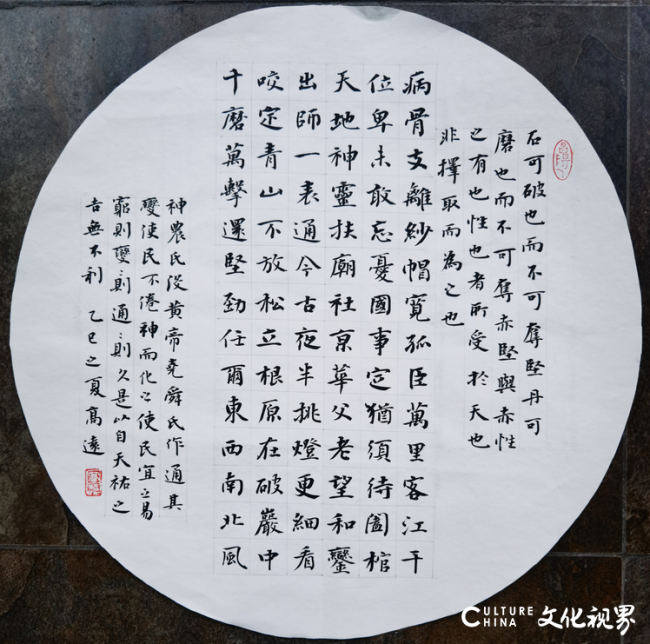 石可破也而不可奪堅丹可
磨也而不可奪赤堅與赤性
之有也性也者所受於天也
非擇取而為之也
病骨支離紗帽寬孤臣萬里客江干
位卑未敢忘憂國事定猶須待闔棺
天地神靈扶廟社京華父老望和鑾
出師一表通今古夜半挑燈更細看
咬定青山不放松立根原在破巖中
千磨萬擊還堅勁任爾東西南北風
神農氏沒黃帝堯舜氏作通其
變使民不倦神而化之使民宜之易
窮則變〻則通〻則久是以自天祐之
吉無不利 乙巳之夏高遠
CULTURE CHINA 文化视界